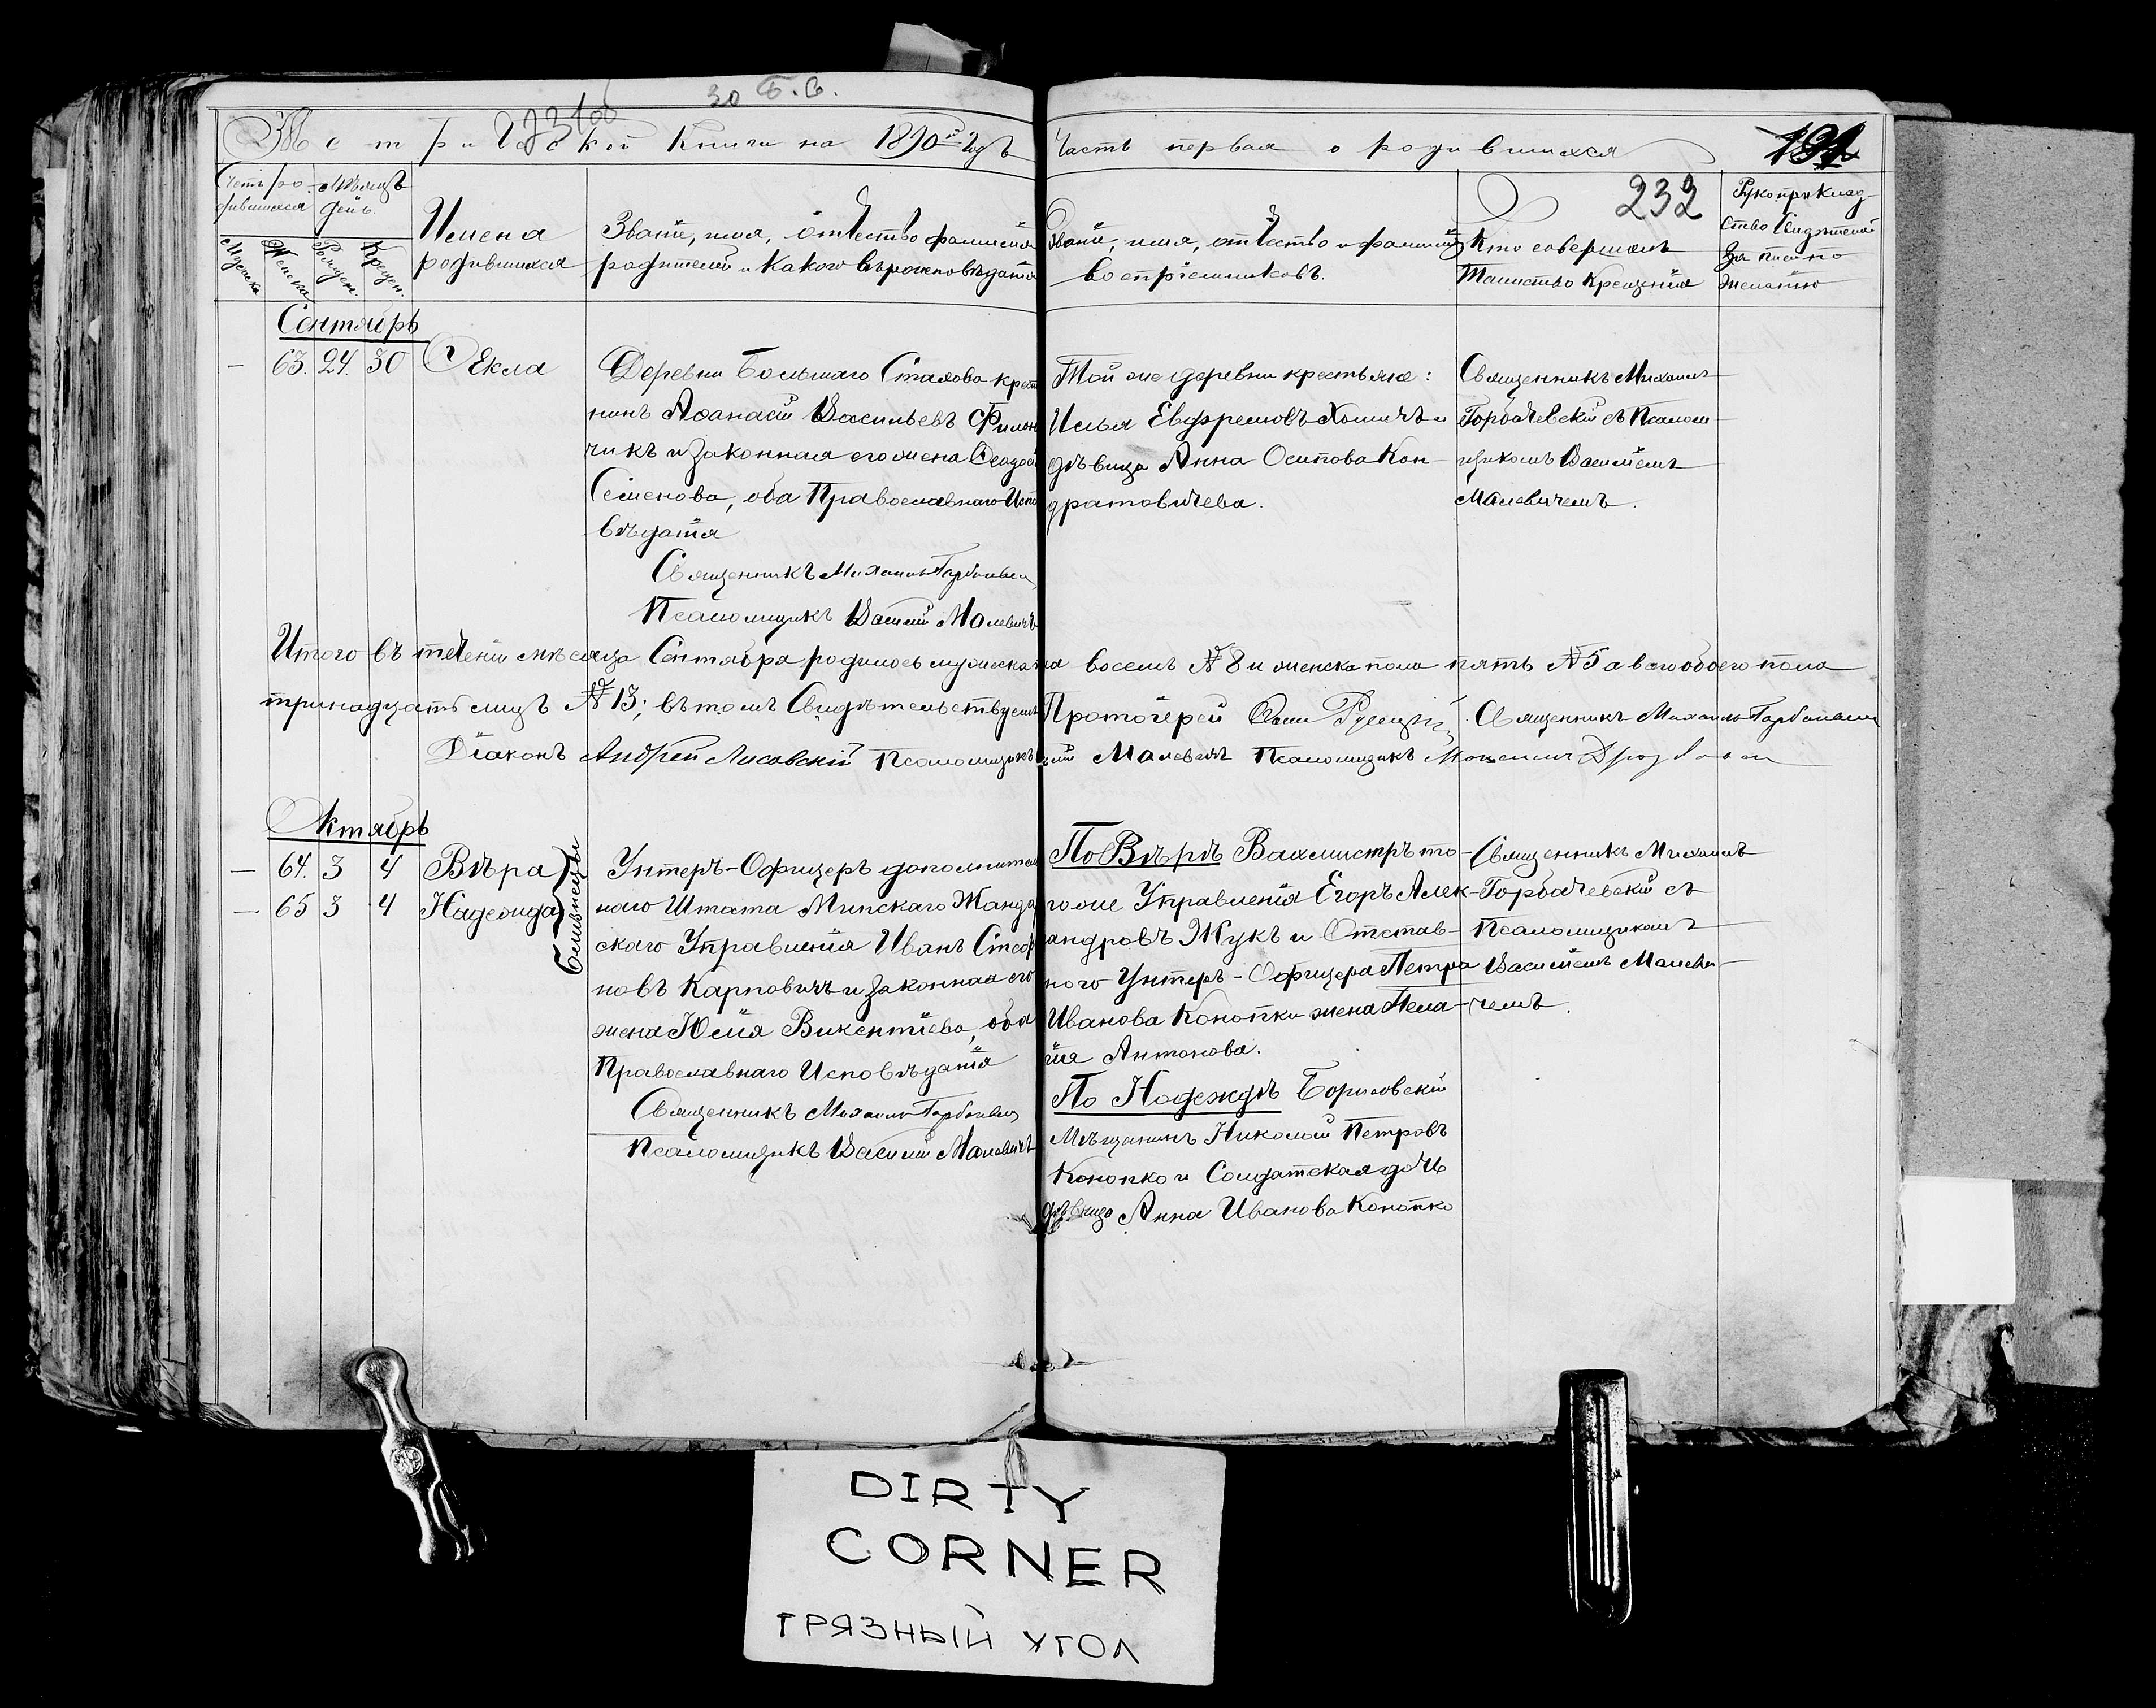 30 Б.С.
231об
Метрической Книги на 1890й Годъ
Часть первая о родившихся
191
232
Счетъ родившихся
Мѣсяцъ день.
Мужеска
Женска
Рожден.
Крещен.
Имена родившихся
Званіе, имя, отчество фамилія
родителей и какого вѣроисповѣданія
Званіе, имя, отчество и фамилія
Воспріемниковъ.
Кто совершалъ
Таинство Крещенія
Рукоприклад-
ство Свидѣтелей
записи по
желанію
Сентябрь
— 63. 24. 30 Ѳекла
Деревни Большаго Стахова крестья
нинъ Аѳанасій Васильевъ Филон
чикъ и законная его жена Ѳеодосія
Семенова, оба Православнаго Испо
вѣданія
Священникъ Михаилъ Горбачевскій
Псаломщикъ Василій Малевичъ
Той же деревни крестьяне:
Илья Евфремовъ Хомичъ и
дѣвица Анна Осипова Кон-
дратовичева.
Священникъ Михаилъ
Горбачевскій съ Псалом-
щикомъ Василіемъ
Малевичемъ.
Итого въ теченіи мѣсяца Сентября родилось мужеска пола восемь № 8 и женска пола пять № 5 а всего обоего пола
тринадцать лицъ № 13; въ томъ Свидѣтельствуемъ Протоіерей Русецкій. Священникъ Михаилъ Горбачевскій
Діаконъ Андрей Лисовскій Псаломщикъ Василій Малевичъ Псаломщикъ
Октябрь
— 64. 3 4 Вѣра
— 65 3 4 Надежда
близнецы
Унтеръ-Офицеръ дополнитель
наго Штата Минскаго Жандарм
скаго Управленія Иванъ Стефа
новъ Карповичъ и законная его
жена Юлія Викентіева, оба
Православнаго Исповѣданія
Священникъ Михаилъ Горбачевскій
Псаломщикъ Василій Малевичъ
По Вѣрѣ Вахмистръ то-
го же Управленія Егоръ Алек-
андровъ Жукъ и Отстав-
ного Унтеръ-Офицера Петра
Иванова Конопки жена Пела-
гія Антонова.
По Надеждѣ Борисовскій
Мѣщанинъ Николай Петровъ
Конопко и Солдатская дочь
дѣвица Анна Иванова Конопко
Священникъ Михаилъ
Горбачевскій съ
Псаломщикомъ
Василіемъ Малеви-
чемъ.
DIRTY
CORNER
ГРЯЗНЫЙ УГОЛ